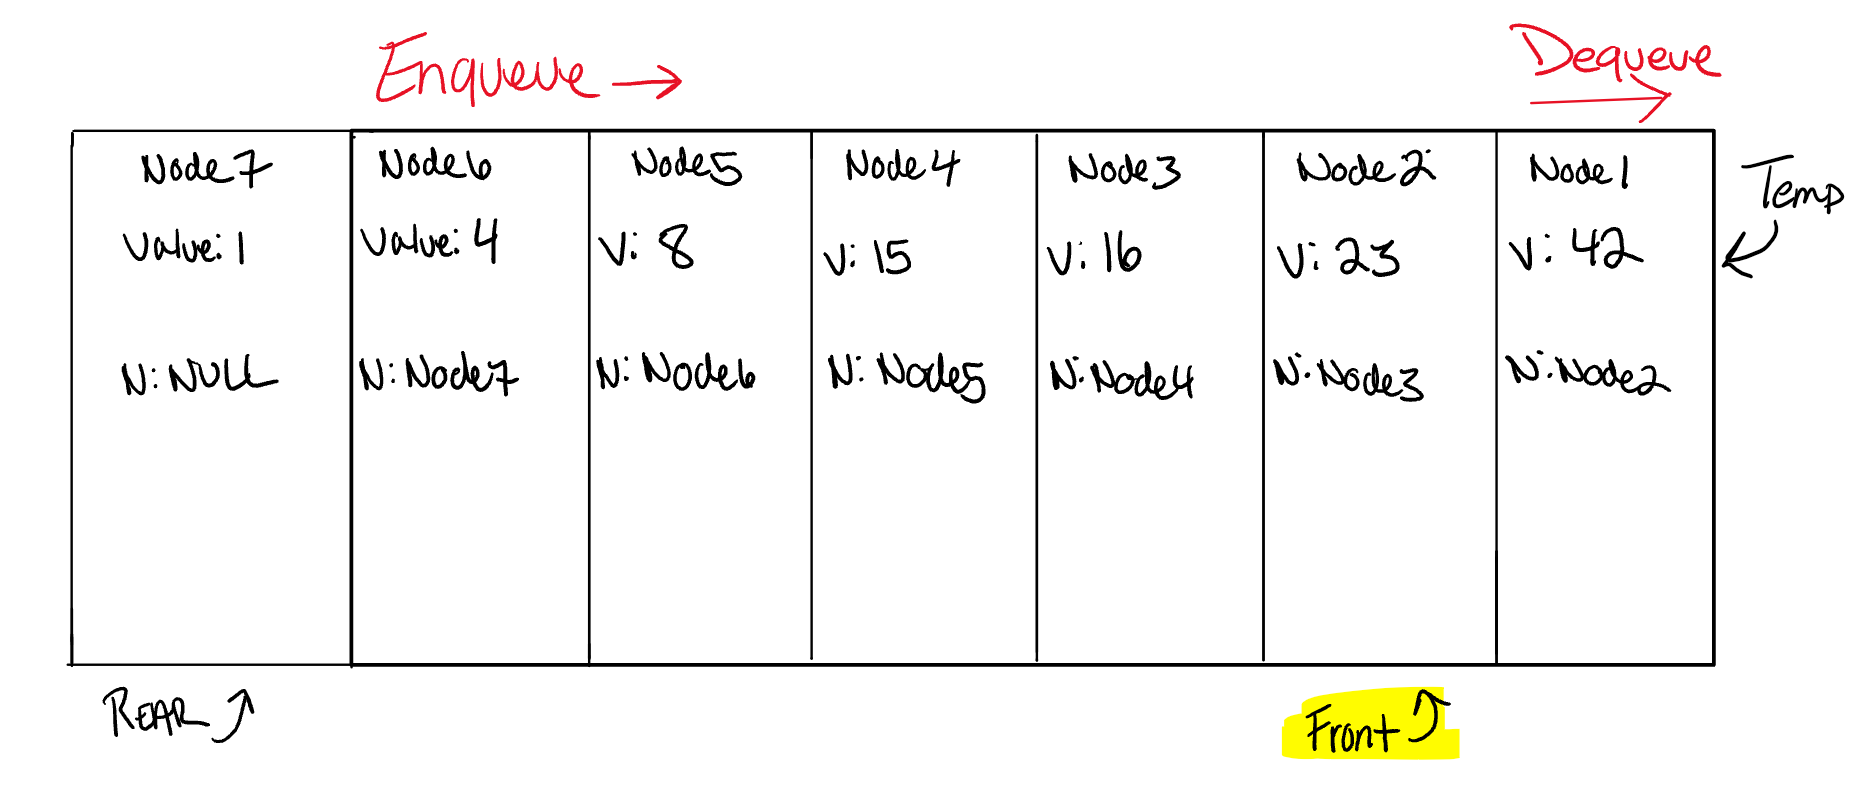 Enqueue →
Dequeue →
Node7 Node6 Node5 Node4 Node3 Node2 Node1
Temp
Value: 1 Value: 4 V: 8 V: 15 V: 16 V: 23 V: 42
N: NULL N: Node7 N: Node6 N: Node5 N: Node4 N: Node3 N: Node2
REAR
Front